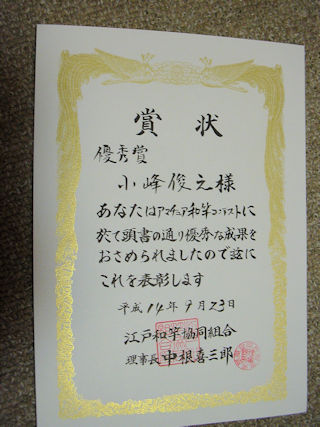 賞状
優秀賞
小峰俊之様
あなたはアマチュア和竿コンテストに
於て頭書の通り優秀な成果を
おさめられましたので茲に
これを表彰します
平成14年9月23日
江戸和竿協同組合
理事長 中根喜三郎